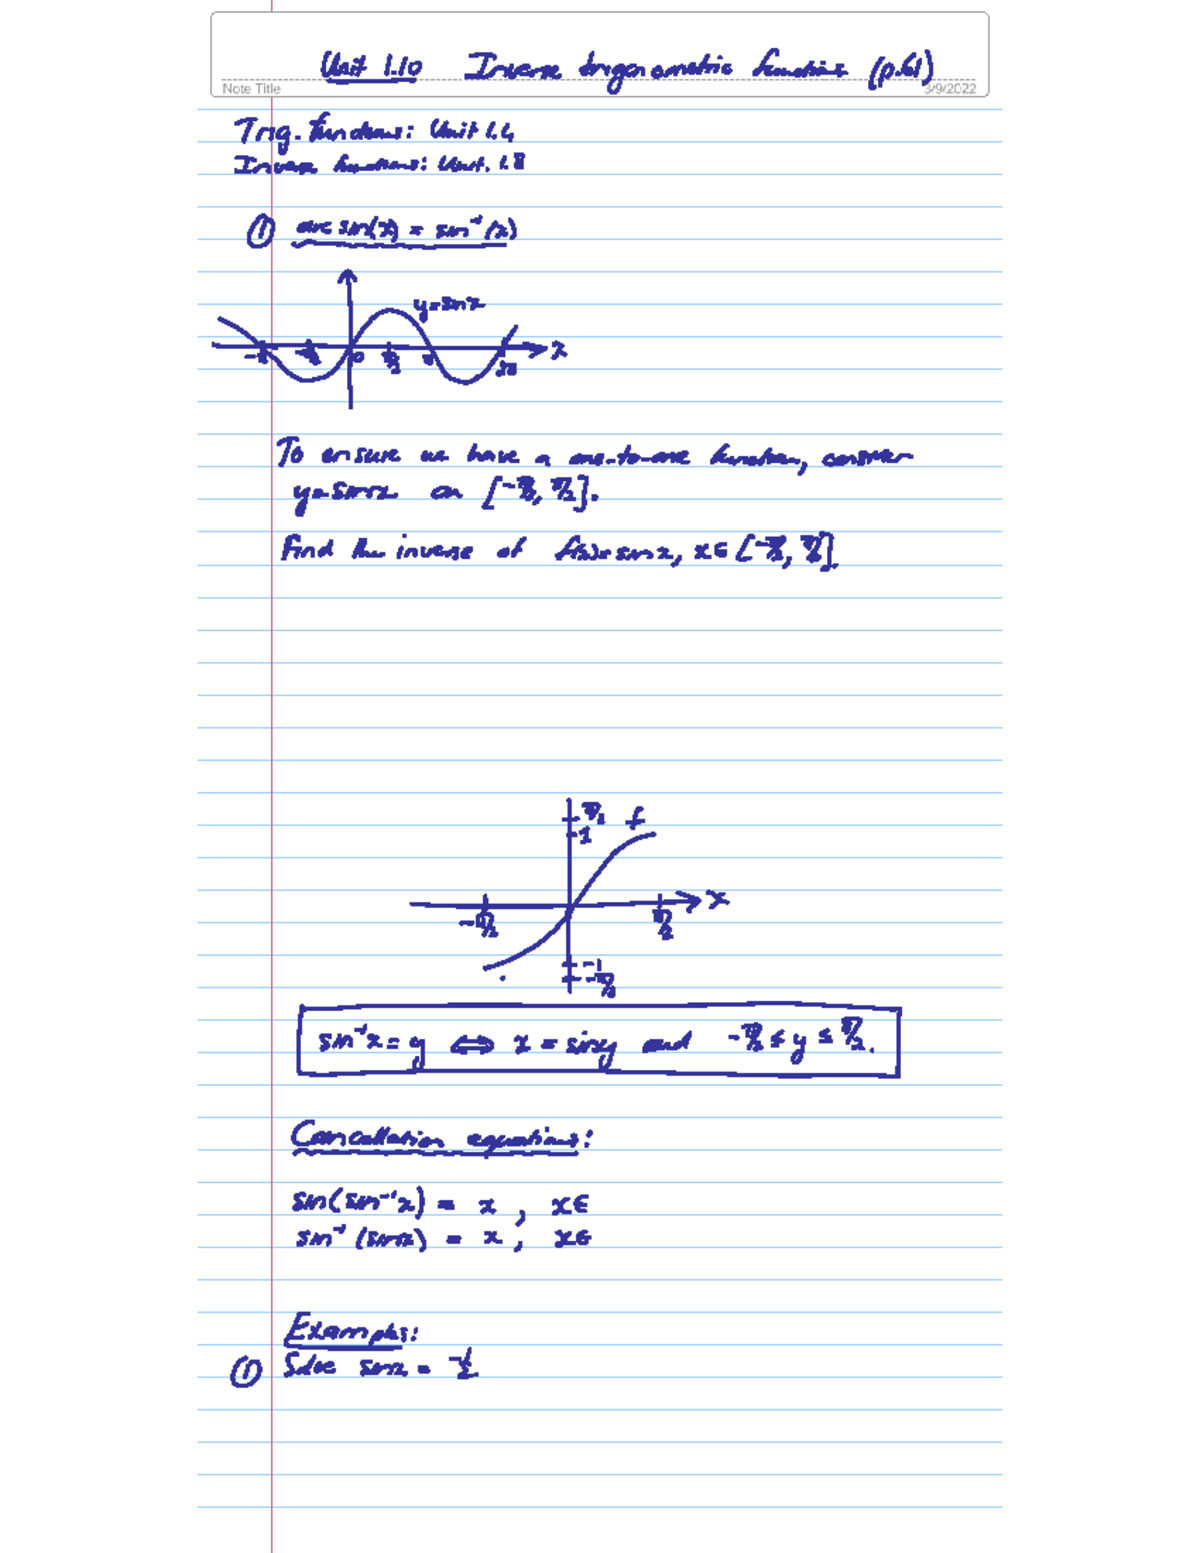 Unit 1.10 Inverse trigonometric functions (p.61)
Note Title
3/9/2022
Trig. functions: Unit 1.4
Inverse functions: Unit. 1.8
① arcsin(x) = sin⁻¹(x)
y=sinx
-π -π/2 0 π/2 π 2π x
To ensure we have a one-to-one function, consider
y=sinx on [-π/2, π/2].
Find the inverse of f(x)=sinx, x∈[-π/2, π/2].
π/2 f
1
-π/2 π/2 x
-1
-π/2
sin⁻¹x = y ⟺ x = siny and -π/2 ≤ y ≤ π/2.
Cancellation equations:
sin(sin⁻¹x) = x , x∈
sin⁻¹(sinx) = x , x∈
Examples:
① Solve sinx =